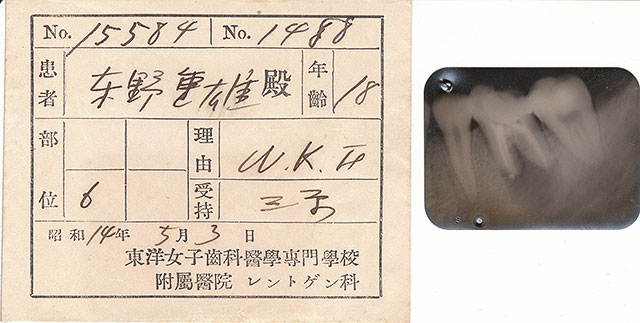 No. 15584 No. 1488
患者 東野重雄 殿 年齡 18
部位 6 理由 W.K.
受持
昭和14年 5月 3日
東洋女子齒科醫學專門學校
附屬醫院 レントゲン科